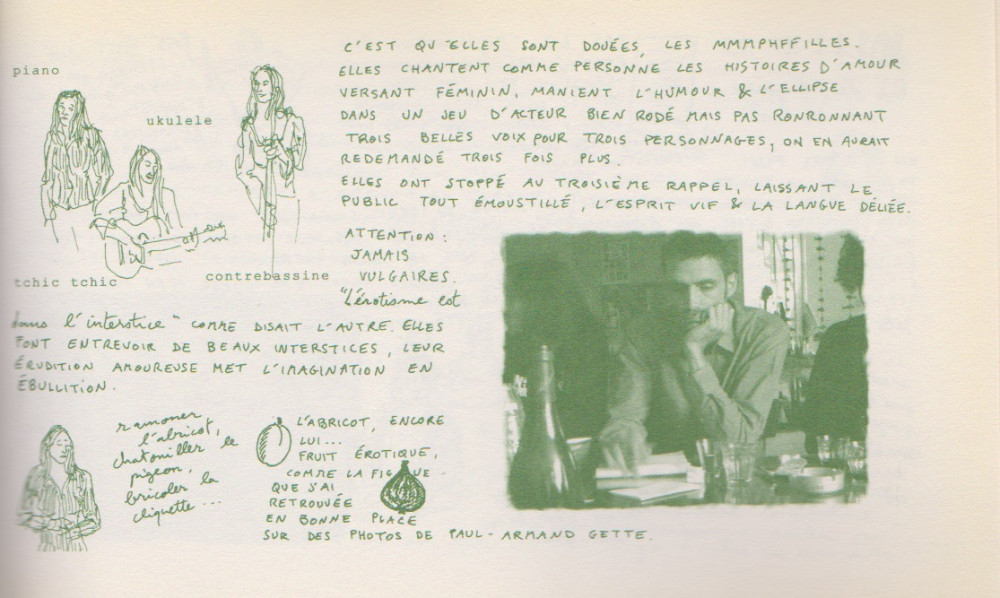 piano
ukulele
tchic tchic
contrebassine
C'EST QU'ELLES SONT DOUÉES, LES MMMPHFFILLES.
ELLES CHANTENT COMME PERSONNE LES HISTOIRES D'AMOUR
VERSANT FÉMININ, MANIENT L'HUMOUR & L'ELLIPSE
DANS UN JEU D'ACTEUR BIEN RODÉ MAIS PAS RONRONNANT
TROIS BELLES VOIX POUR TROIS PERSONNAGES, ON EN AURAIT
REDEMANDÉ TROIS FOIS PLUS.
ELLES ONT STOPPÉ AU TROISIÈME RAPPEL, LAISSANT LE
PUBLIC TOUT ÉMOUSTILLÉ, L'ESPRIT VIF & LA LANGUE DÉLIÉE.
ATTENTION :
JAMAIS
VULGAIRES.
"L'érotisme est
dans l'interstice" COMME DISAIT L'AUTRE. ELLES
FONT ENTREVOIR DE BEAUX INTERSTICES, LEUR
ÉRUDITION AMOUREUSE MET L'IMAGINATION EN
ÉBULLITION.
ramoner
l'abricot,
chatouiller le
pigeon,
bricoler la
cliquette...
L'ABRICOT, ENCORE
LUI...
FRUIT ÉROTIQUE,
COMME LA FIGUE
QUE J'AI
RETROUVÉE
EN BONNE PLACE
SUR DES PHOTOS DE PAUL-ARMAND GETTE.